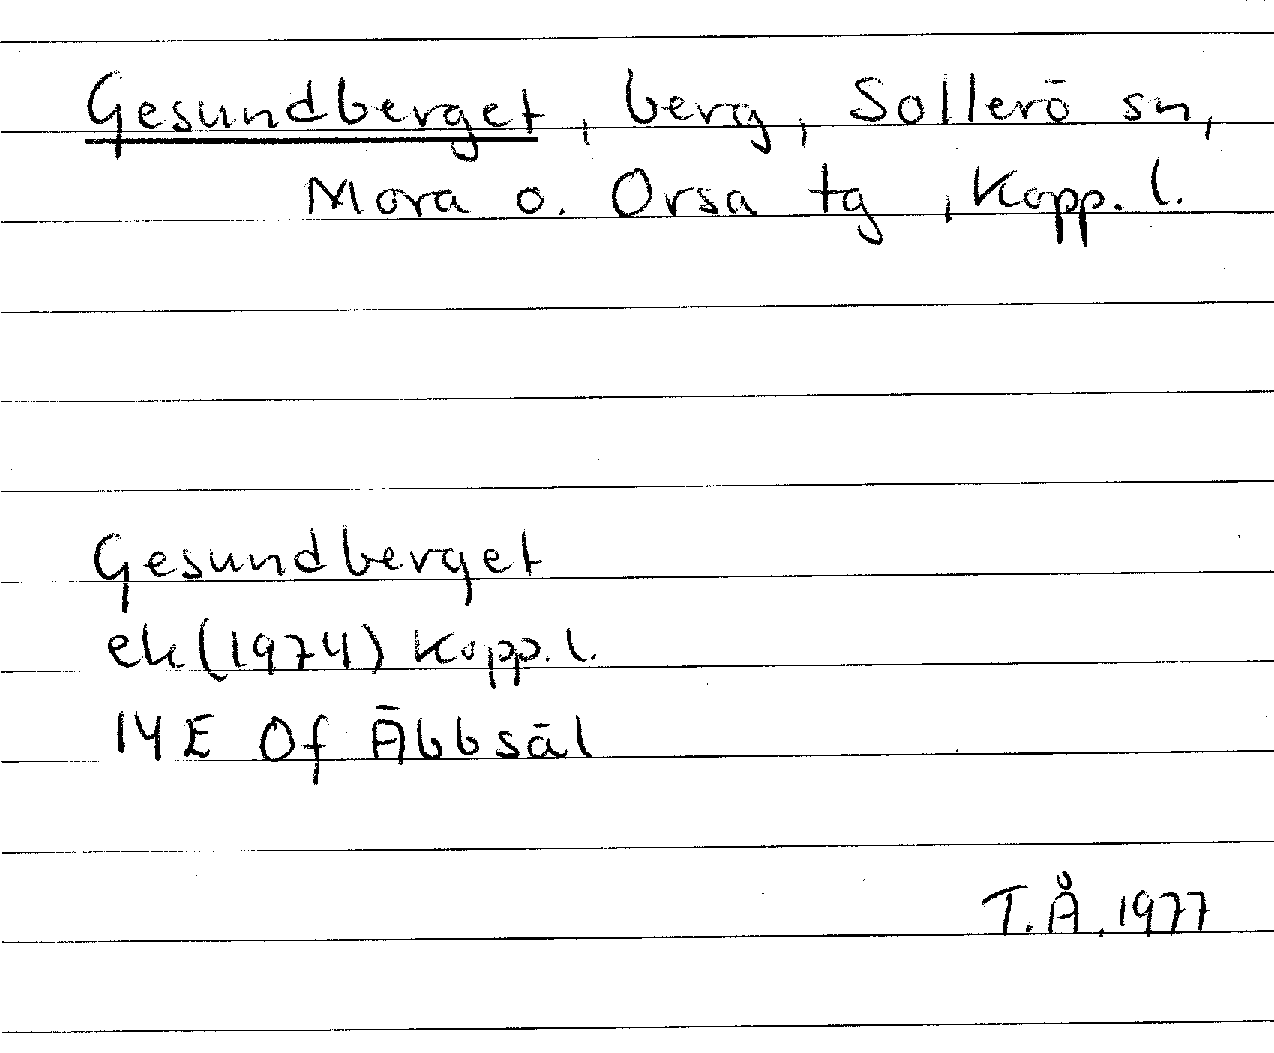 Gesundberget, berg, Sollerö sn,
Mora o. Orsa tg, Kopp. l.
Gesundberget
ek (1974) Kopp. l.
14E 0f Äbbsäl
T.Å. 1977